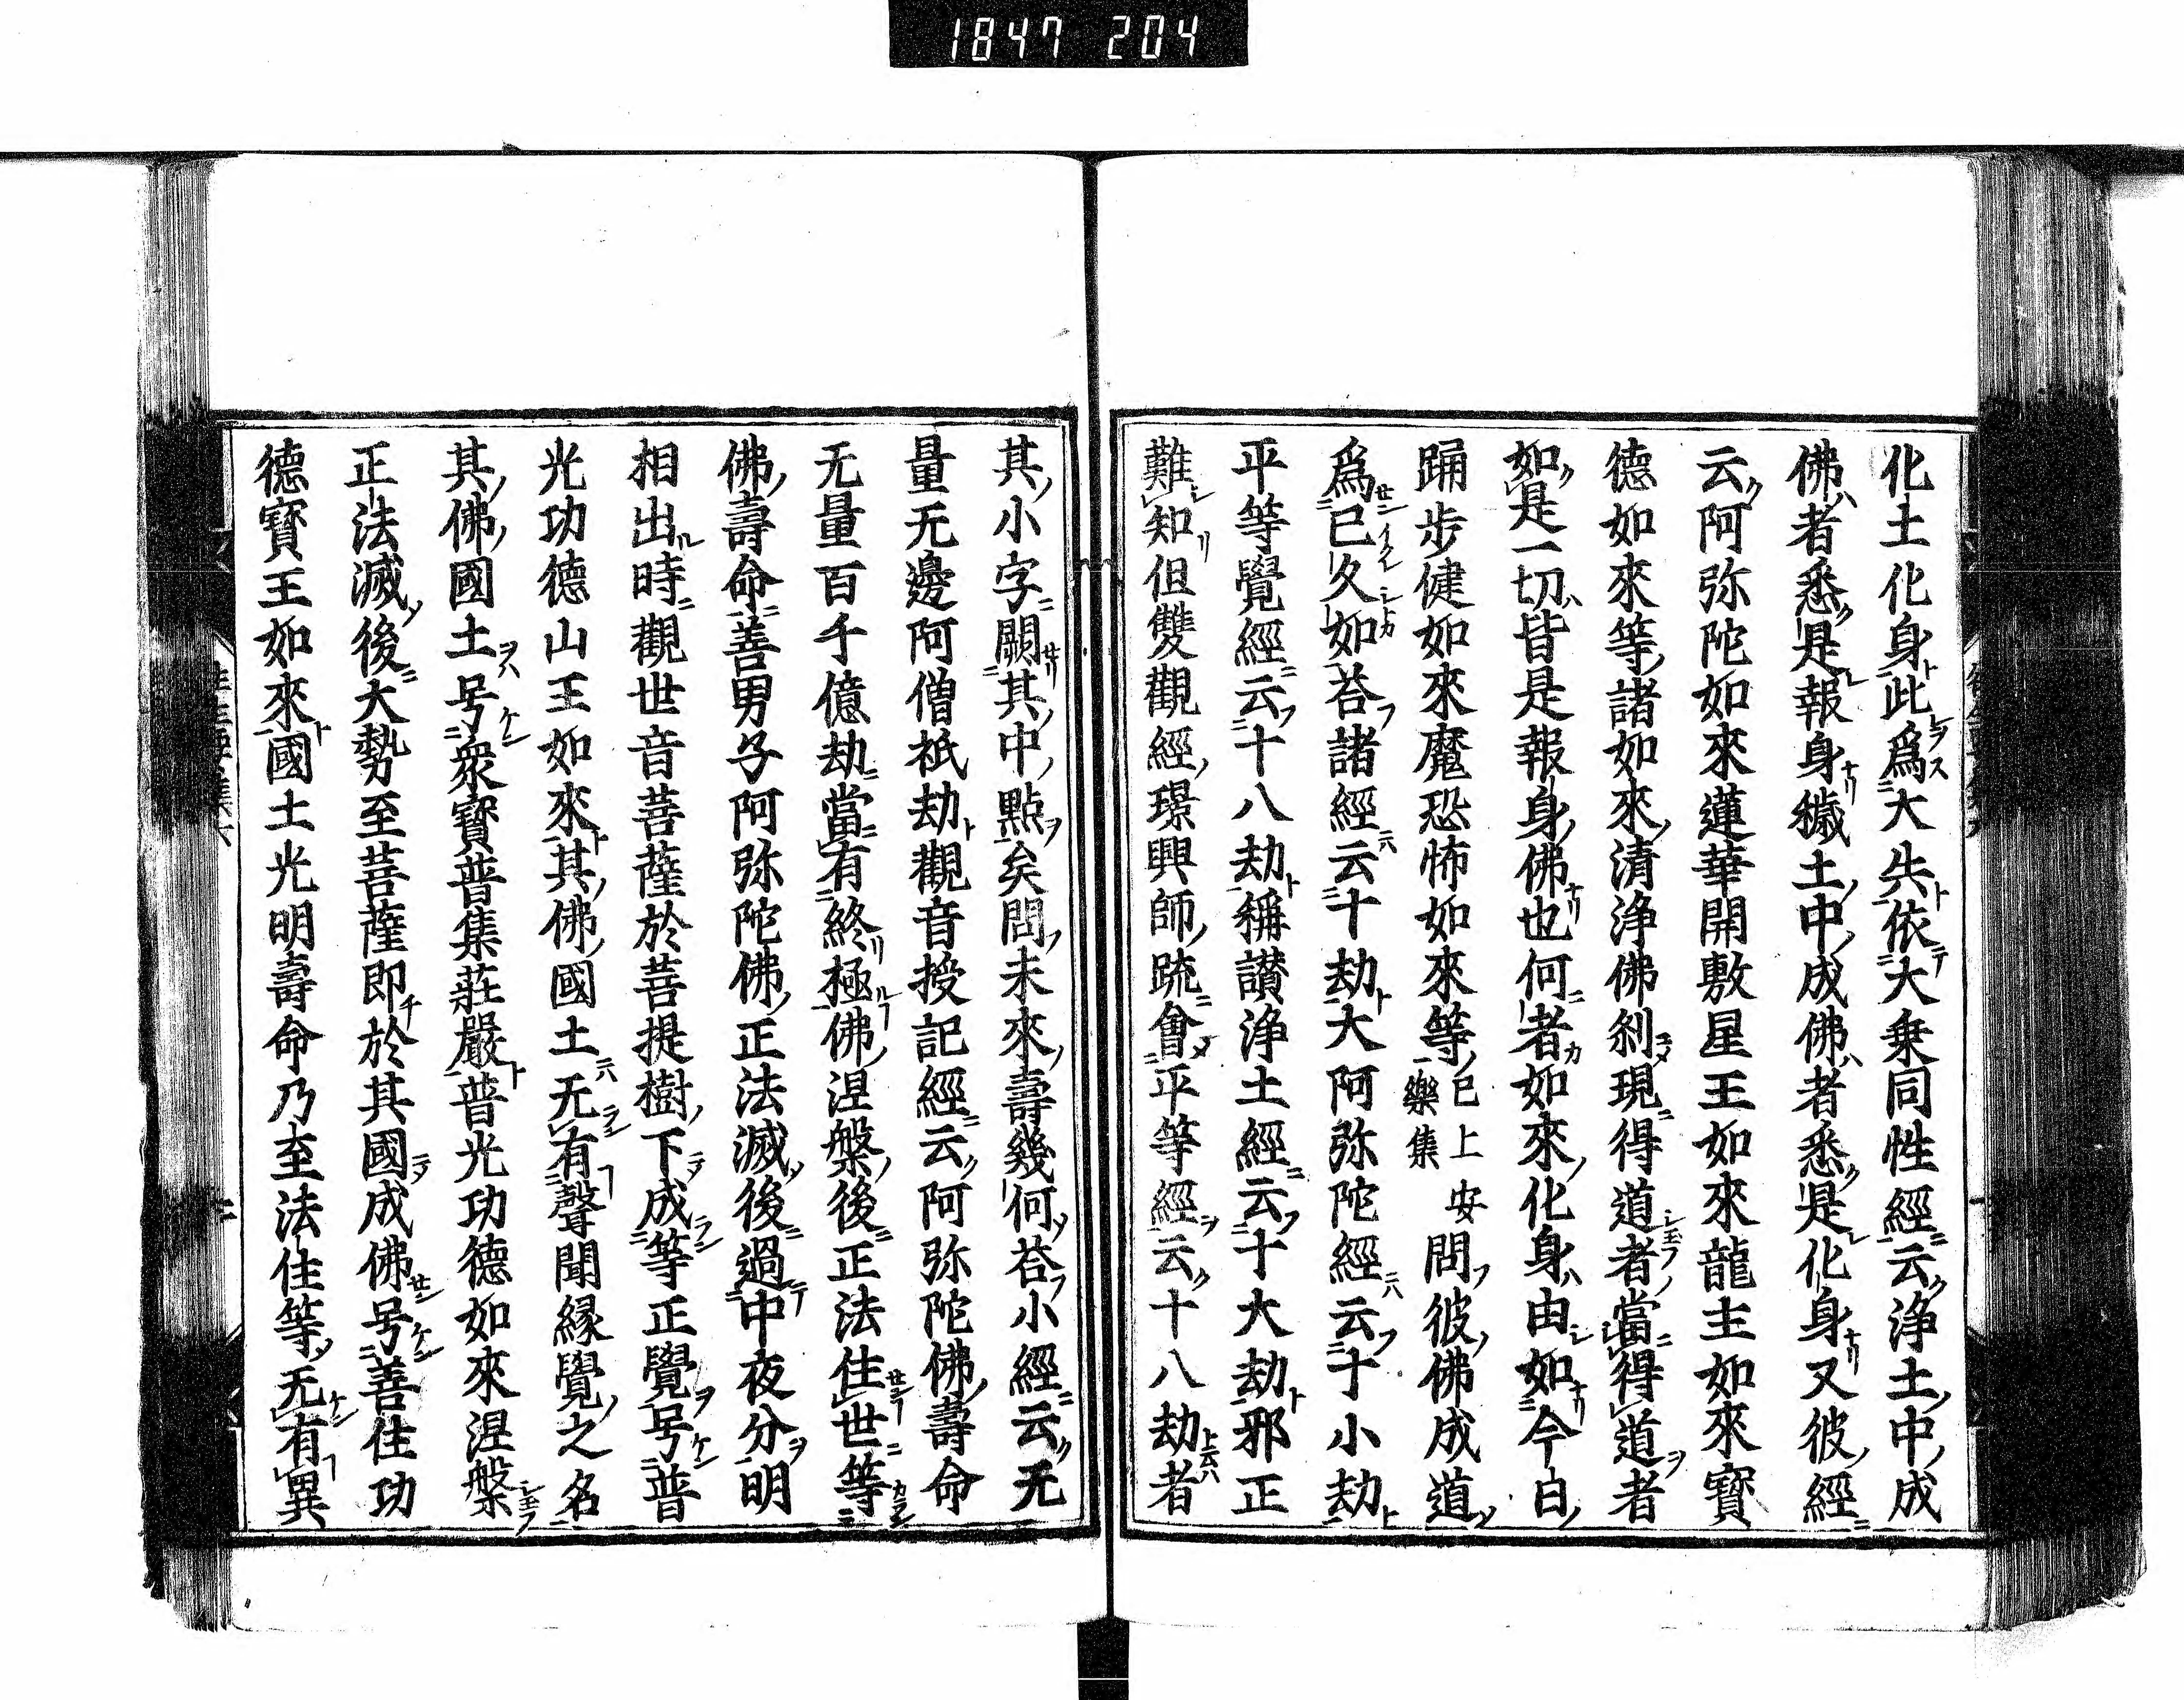 1847 204
化土化身此爲大失依大乗同性經云浄土中成
佛者悉是報身穢土中成佛者悉是化身又彼經
云阿弥陀如來蓮華開敷星王如來龍主如來寳
德如來等諸如來清浄佛刹現得道者當得道者
如是一切皆是報身佛也何者如來化身由如今白
踊歩健如來魔恐怖如來等已上安樂集問彼佛成道
爲已久如荅諸經云十劫大阿弥陀經云十小劫
平等覺經云十八劫稱讃浄土經云十大劫邪正
難知但雙觀經璟興師䟽會平等經云十八劫者
其小字闕其中點矣問未來壽幾何荅小經云无
量无邊阿僧祇劫觀音授記經云阿弥陀佛壽命
无量百千億劫當有終極佛涅槃後正法住世等
佛壽命善男子阿弥陀佛正法滅後過中夜分明
相出時觀世音菩薩於菩提樹下成等正覺号普
光功德山王如來其佛國土无有聲聞縁覺之名
其佛國土号衆寳普集莊嚴普光功德如來涅槃
正法滅後大勢至菩薩即於其國成佛号善住功
德寳王如來國土光明壽命乃至法住等无有異